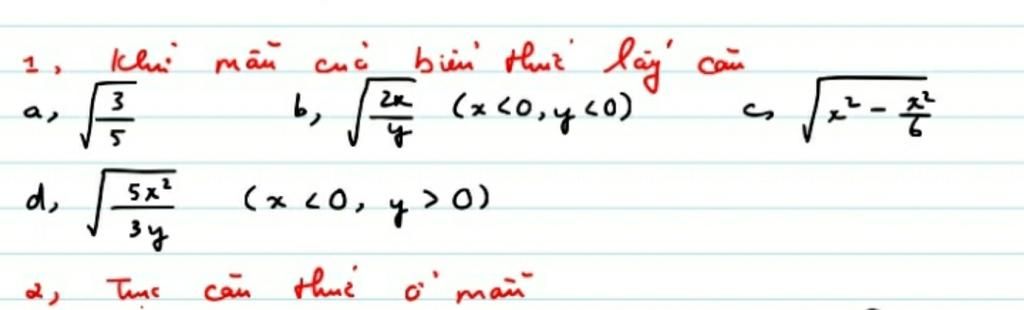 1, Khử mẫu của biểu thức lấy căn
a, √(3/5) b, √(2x/y) (x<0, y<0) c, √(x² - x²/6)
d, √(5x²/3y) (x<0, y>0)
2, Trục căn thức ở mẫu